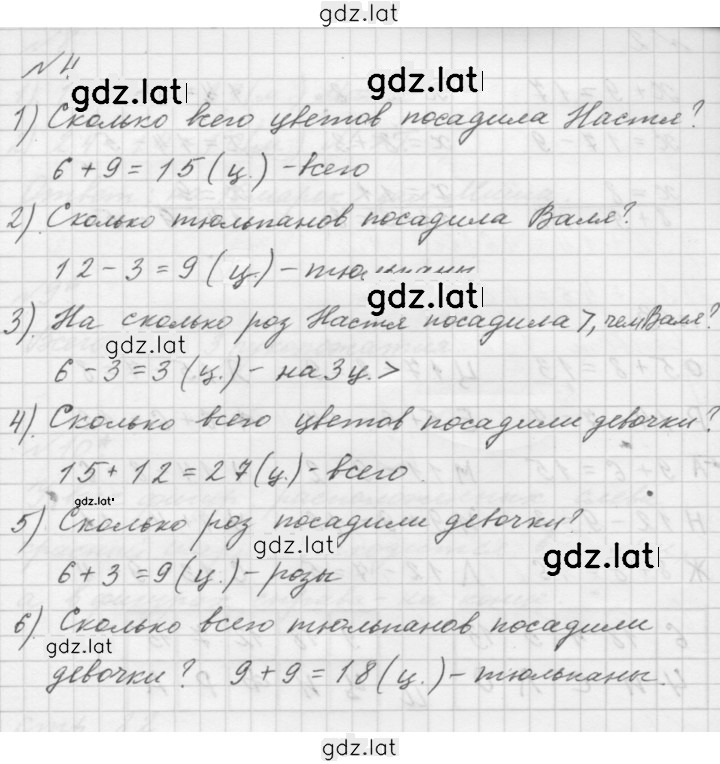 gdz.lat
№ 4.
gdz.lat
gdz.lat
1) Сколько всего цветов посадила Настя?
6 + 9 = 15 (ц.) - всего
2). Сколько тюльпанов посадила Валя?
12 - 3 = 9 (ц.) - тюльпанн
gdz.lat
3). На сколько роз Настя посадила >, чем Валя?
gdz.lat
6 - 3 = 3 (ц.) - на 3 ц. >
4). Сколько всего цветов посадили девочки?
15 + 12 = 27 (ц.) - всего
gdz.lat
5) Сколько роз посадили девочки?
gdz.lat
gdz.lat
6 + 3 = 9 (ц.) - розы
6). Сколько всего тюльпанов посадили
gdz.lat
девочки? 9 + 9 = 18 (ц.) - тюльпаны.
gdz.lat